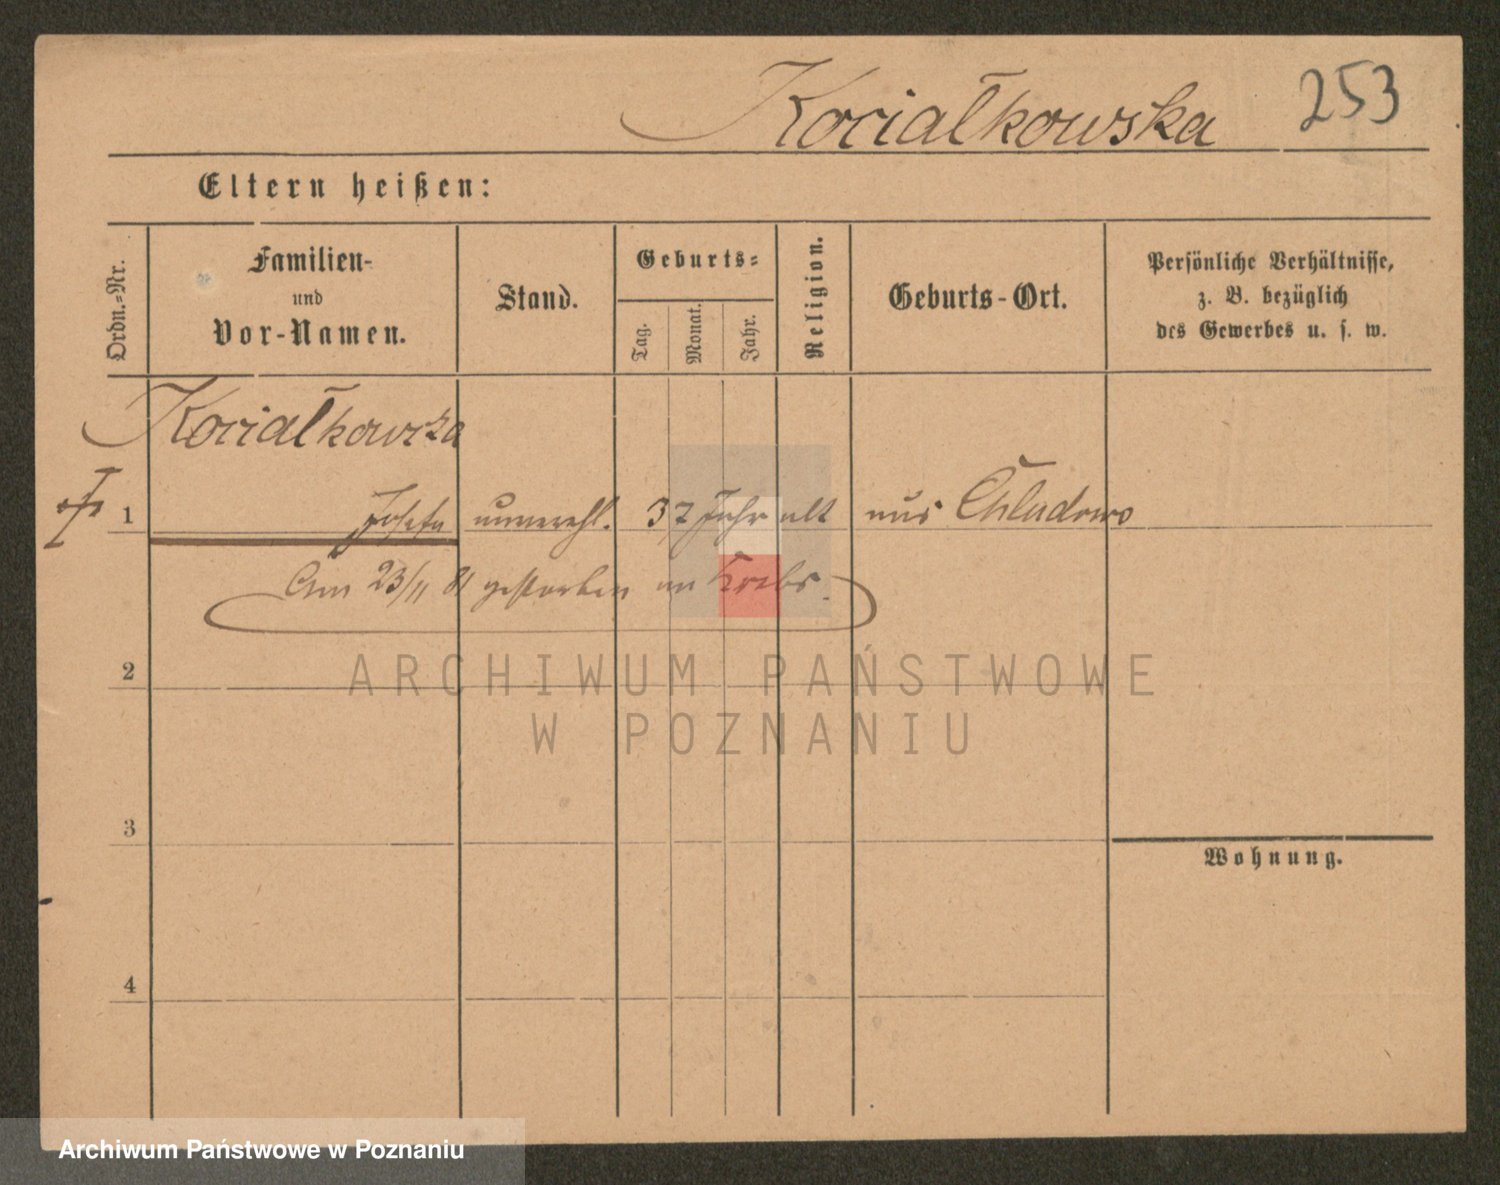 Kociałkowska 253
Eltern heißen:
Ordn.=Nr.
Familien-
und
Vor-Namen.
Stand.
Geburts=
Tag.
Monat.
Jahr.
Religion.
Geburts-Ort.
Persönliche Verhältnisse,
z. B. bezüglich
des Gewerbes u. s. w.
Kociałkowska
1 Josefa unverehl. 37 Jahr alt aus Chludowo
Am 23/11 81 gestorben an Krebs.
2
3
4
Wohnung.
ARCHIWUM PAŃSTWOWE
W POZNANIU
Archiwum Państwowe w Poznaniu